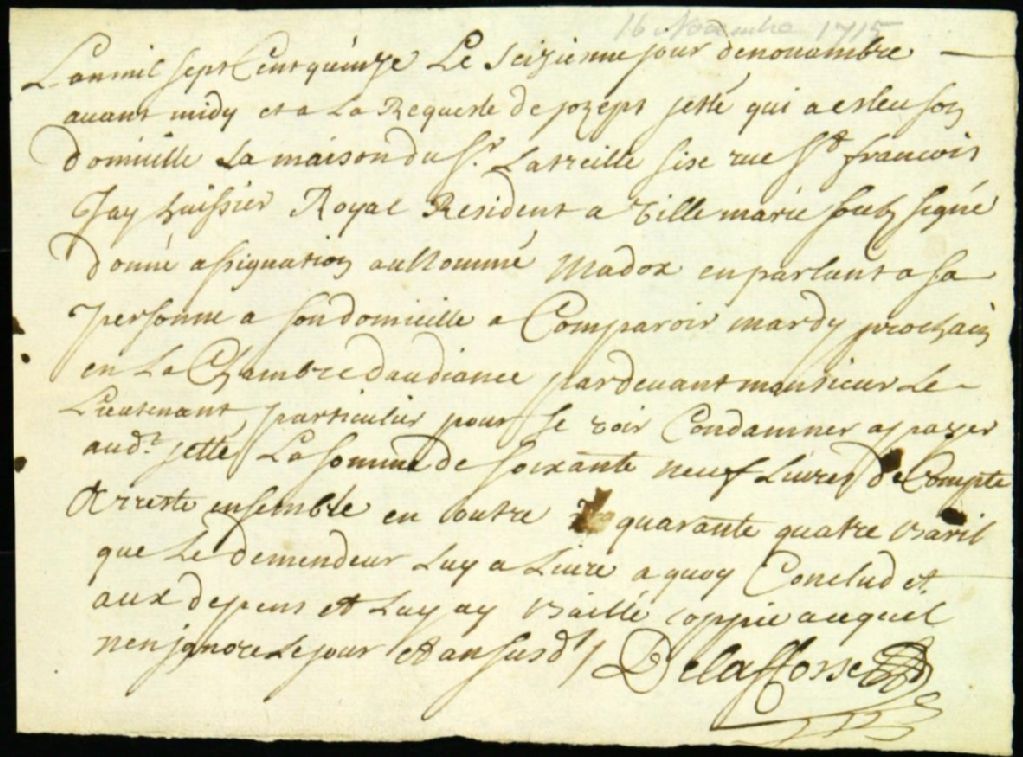 16 Novembre 1715
Lan mil sept Cent quinze Le seizieme jour denouambre
auant midy et a La Requeste de jozept jetté qui a esleu son
domicille La maison du Sr. Latreille sise rue St francois
Jay huissier Royal Resident a ville marie soubsigné
donné assignation au Nommé Madox en parlant a sa
personne a son domicille a Comparoir mardy prochain
en La Chambre daudiance pardeuant monsieur Le
Lieutenant particulier pour se voir Condamner a payer
audt. jetté La somme de soixante neuf Liures de Compte
Arresté ensemble en outre quarante quatre baril
que Le demendeur Luy a Liuré a quoy Conclud et
aux depens et Luy ay baillé coppie acequil
nen jgnore Le jour et an susdt /
Delafosse